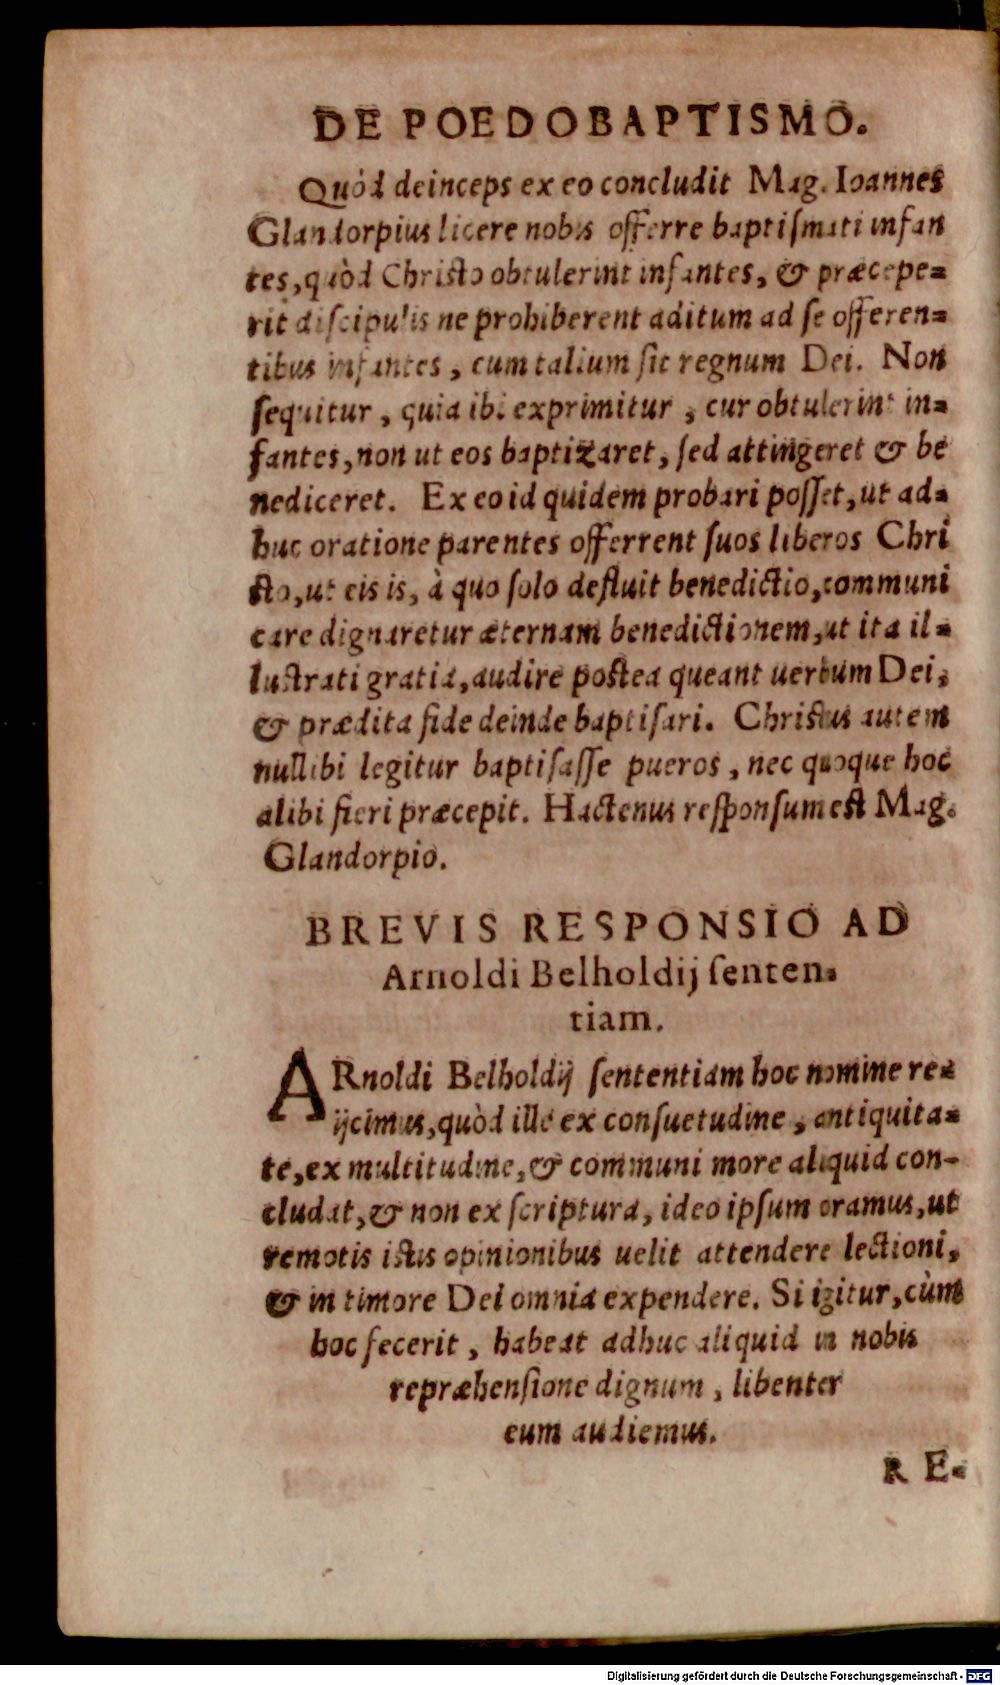 DE POEDOBAPTISMO.
Quòd deinceps ex eo concludit Mag. Ioannes
Glandorpius licere nobis offerre baptiſmati infan
tes, quòd Chriſto obtulerint infantes, & præcepe-
rit diſcipulis ne prohiberent aditum ad ſe offeren-
tibus infantes, cum talium ſit regnum Dei. Non
ſequitur, quia ibi exprimitur, cur obtulerint in-
fantes, non ut eos baptizaret, ſed attingeret & be
nediceret. Ex eo id quidem probari poſſet, ut ad-
huc oratione parentes offerrent ſuos liberos Chri
ſto, ut eis is, à quo ſolo defluit benedictio, communi
care dignaretur æternam benedictionem, ut ita il-
luſtrati gratia, audire poſtea queant uerbum Dei,
& prædita fide deinde baptiſari. Chriſtus autem
nullibi legitur baptiſaſſe pueros, nec quoque hoc
alibi fieri præcepit. Hactenus reſponſum eſt Mag.
Glandorpio.
BREVIS RESPONSIO AD
Arnoldi Belholdij ſenten-
tiam.
ARnoldi Belholdij ſententiam hoc nomine re-
ijcimus, quòd ille ex conſuetudine, antiquita-
te, ex multitudine, & communi more aliquid con-
cludat, & non ex ſcriptura, ideo ipſum oramus, ut
remotis iſtis opinionibus uelit attendere lectioni,
& in timore Dei omnia expendere. Si igitur, cùm
hoc fecerit, habeat adhuc aliquid in nobis
repræhenſione dignum, libenter
eum audiemus.
R E-
Digitalisierung gefördert durch die Deutsche Forschungsgemeinschaft - DFG